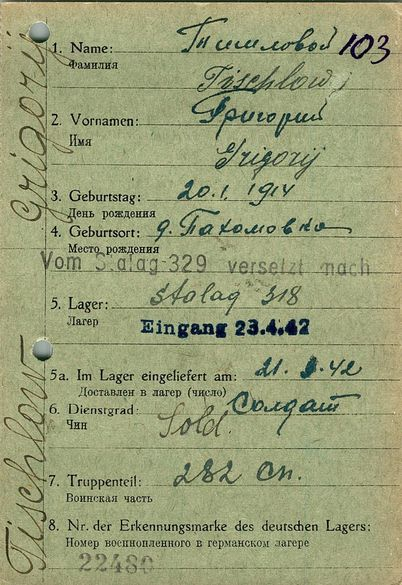 103
1. Name: Тишловой
Фамилия
Tischlow
2. Vornamen: Григорий
Имя
Grigorij
3. Geburtstag: 20.1.1914
День рождения
4. Geburtsort: д. Пахомовка
Место рождения
Vom Stalag 329 versetzt nach
5. Lager: Stalag 318
Лагер
Eingang 23.4.42
5a. Im Lager eingeliefert am: 42
Доставлен в лагер (число)
6. Dienstgrad: Солдат
Чин
Sold.
7. Truppenteil: 282 сп.
Воинская часть
8. Nr. der Erkennungsmarke des deutschen Lagers:
Номер военнопленного в германском лагере
22480
Tischlow Grigorij